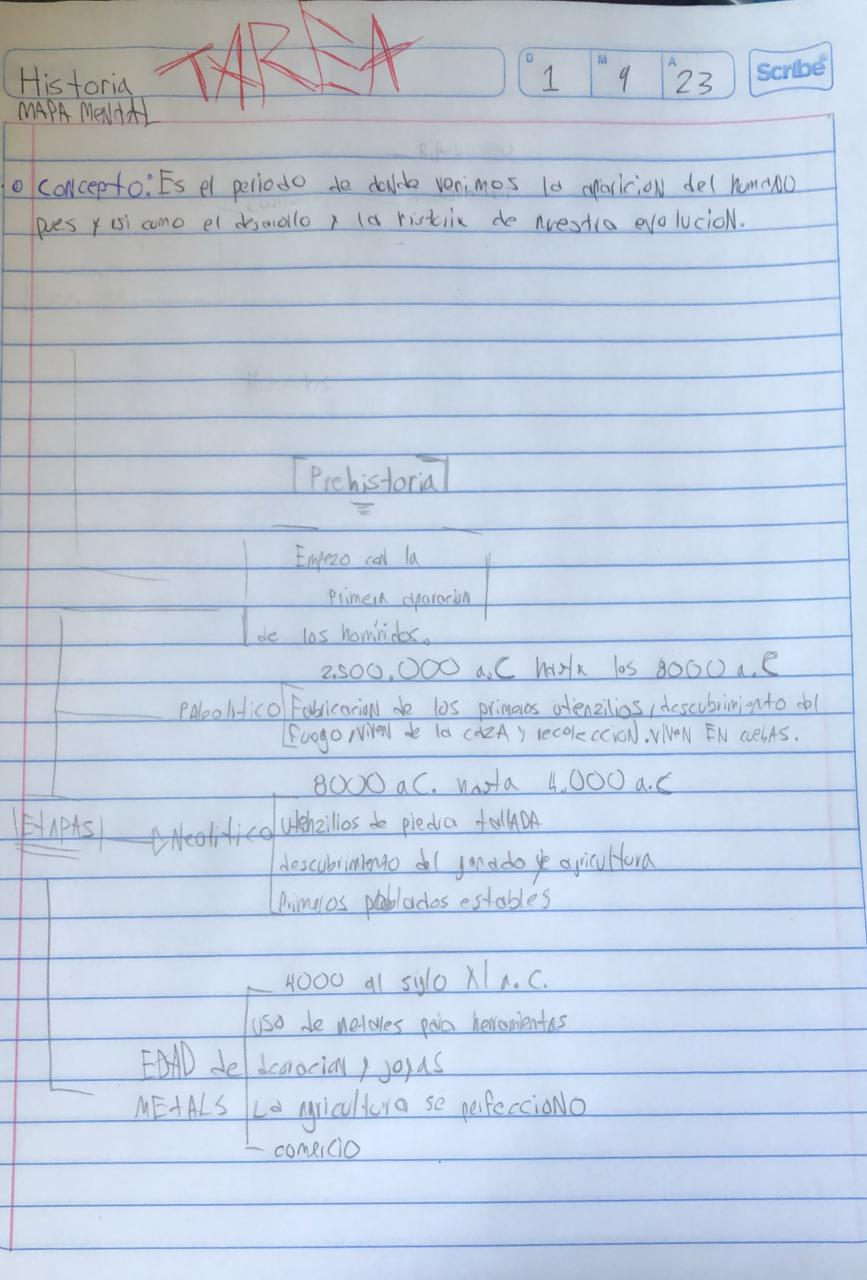 TAREA
Historia
D 1 M 9 A 23
Scribe
MAPA MENtAL
Concepto: Es el periodo de donde venimos la aparicion del humano
pues y asi como el desarollo y la ristoiia de nuestra evolucion.
Prehistoria
Empezo con la
primera aparacion
de los homínidos.
2.500.000 a.C hasta los 8000 a.C
PAleolitico Fabricacion de los primeros utenzilios, descubrimiento del
fuego, viven de la caza y recoleccion. viven EN cuebas.
8000 a.C. hasta 4.000 a.C
EtAPAS Neolitico utenzilios de piedra tallADA
descubrimiento del ganado y agricultura
Primeros poblados estables
4000 al siglo XI a.C.
uso de metales para herramientas
EDAD de decoracion y joyas
MEtALS La agricultura se perfecciono
comercio